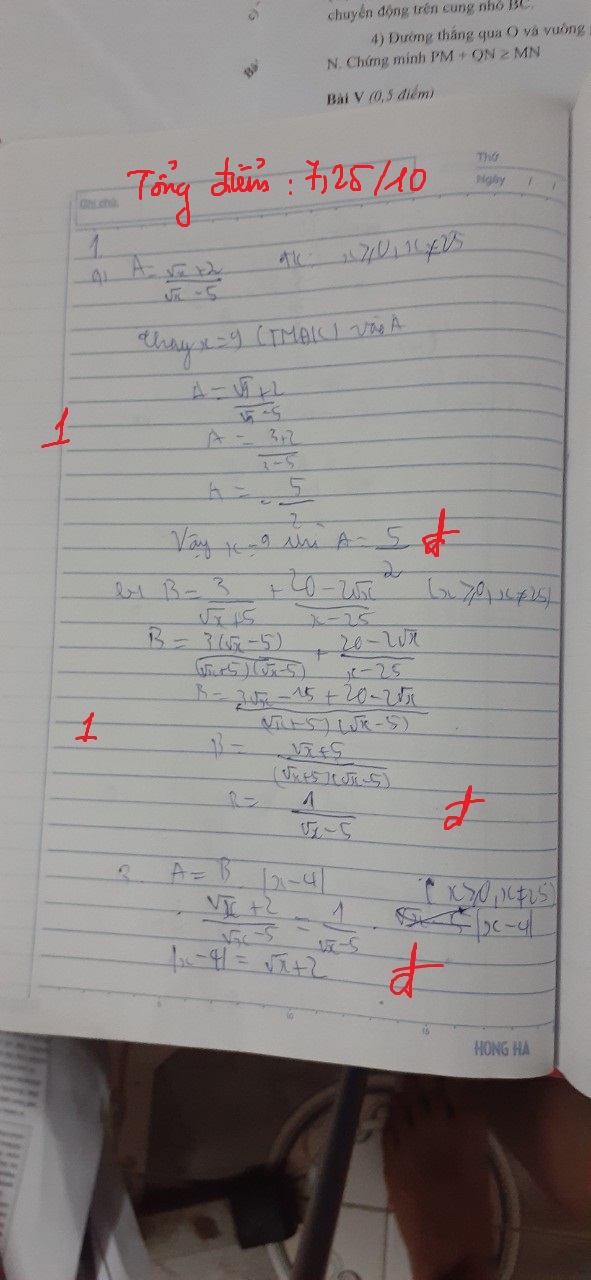 chuyển động trên cung nhỏ BC.
4) Đường thẳng qua O và vuông
N. Chứng minh PM + QN ≥ MN
Bài
Bài V (0,5 điểm)
Thứ
Ngày / /
Ghi chú:
Tổng điểm : 7,25/10
1
a) A = (√x + 2)/(√x - 5) ĐK: x ≥ 0, x ≠ 25
Thay x = 9 (TMĐK) vào A
A = (√9 + 2)/(√9 - 5)
1
A = (3+2)/(3-5)
A = - 5/2
Vậy x = 9 thì A = 5/2 đ
B = 3/(√x + 5) + (20 - 2√x)/(x - 25) (x ≥ 0, x ≠ 25)
B = 3(√x - 5)/((√x + 5)(√x - 5)) + (20 - 2√x)/(x - 25)
B = (3√x - 15 + 20 - 2√x)/((√x + 5)(√x - 5))
1
B = (√x + 5)/((√x + 5)(√x - 5))
B = 1/(√x - 5) đ
3. A = B |x - 4| (x ≥ 0, x ≠ 25)
(√x + 2)/(√x - 5) = 1/(√x - 5) . |x - 4|
|x - 4| = √x + 2 đ
5 10 15
HONG HA